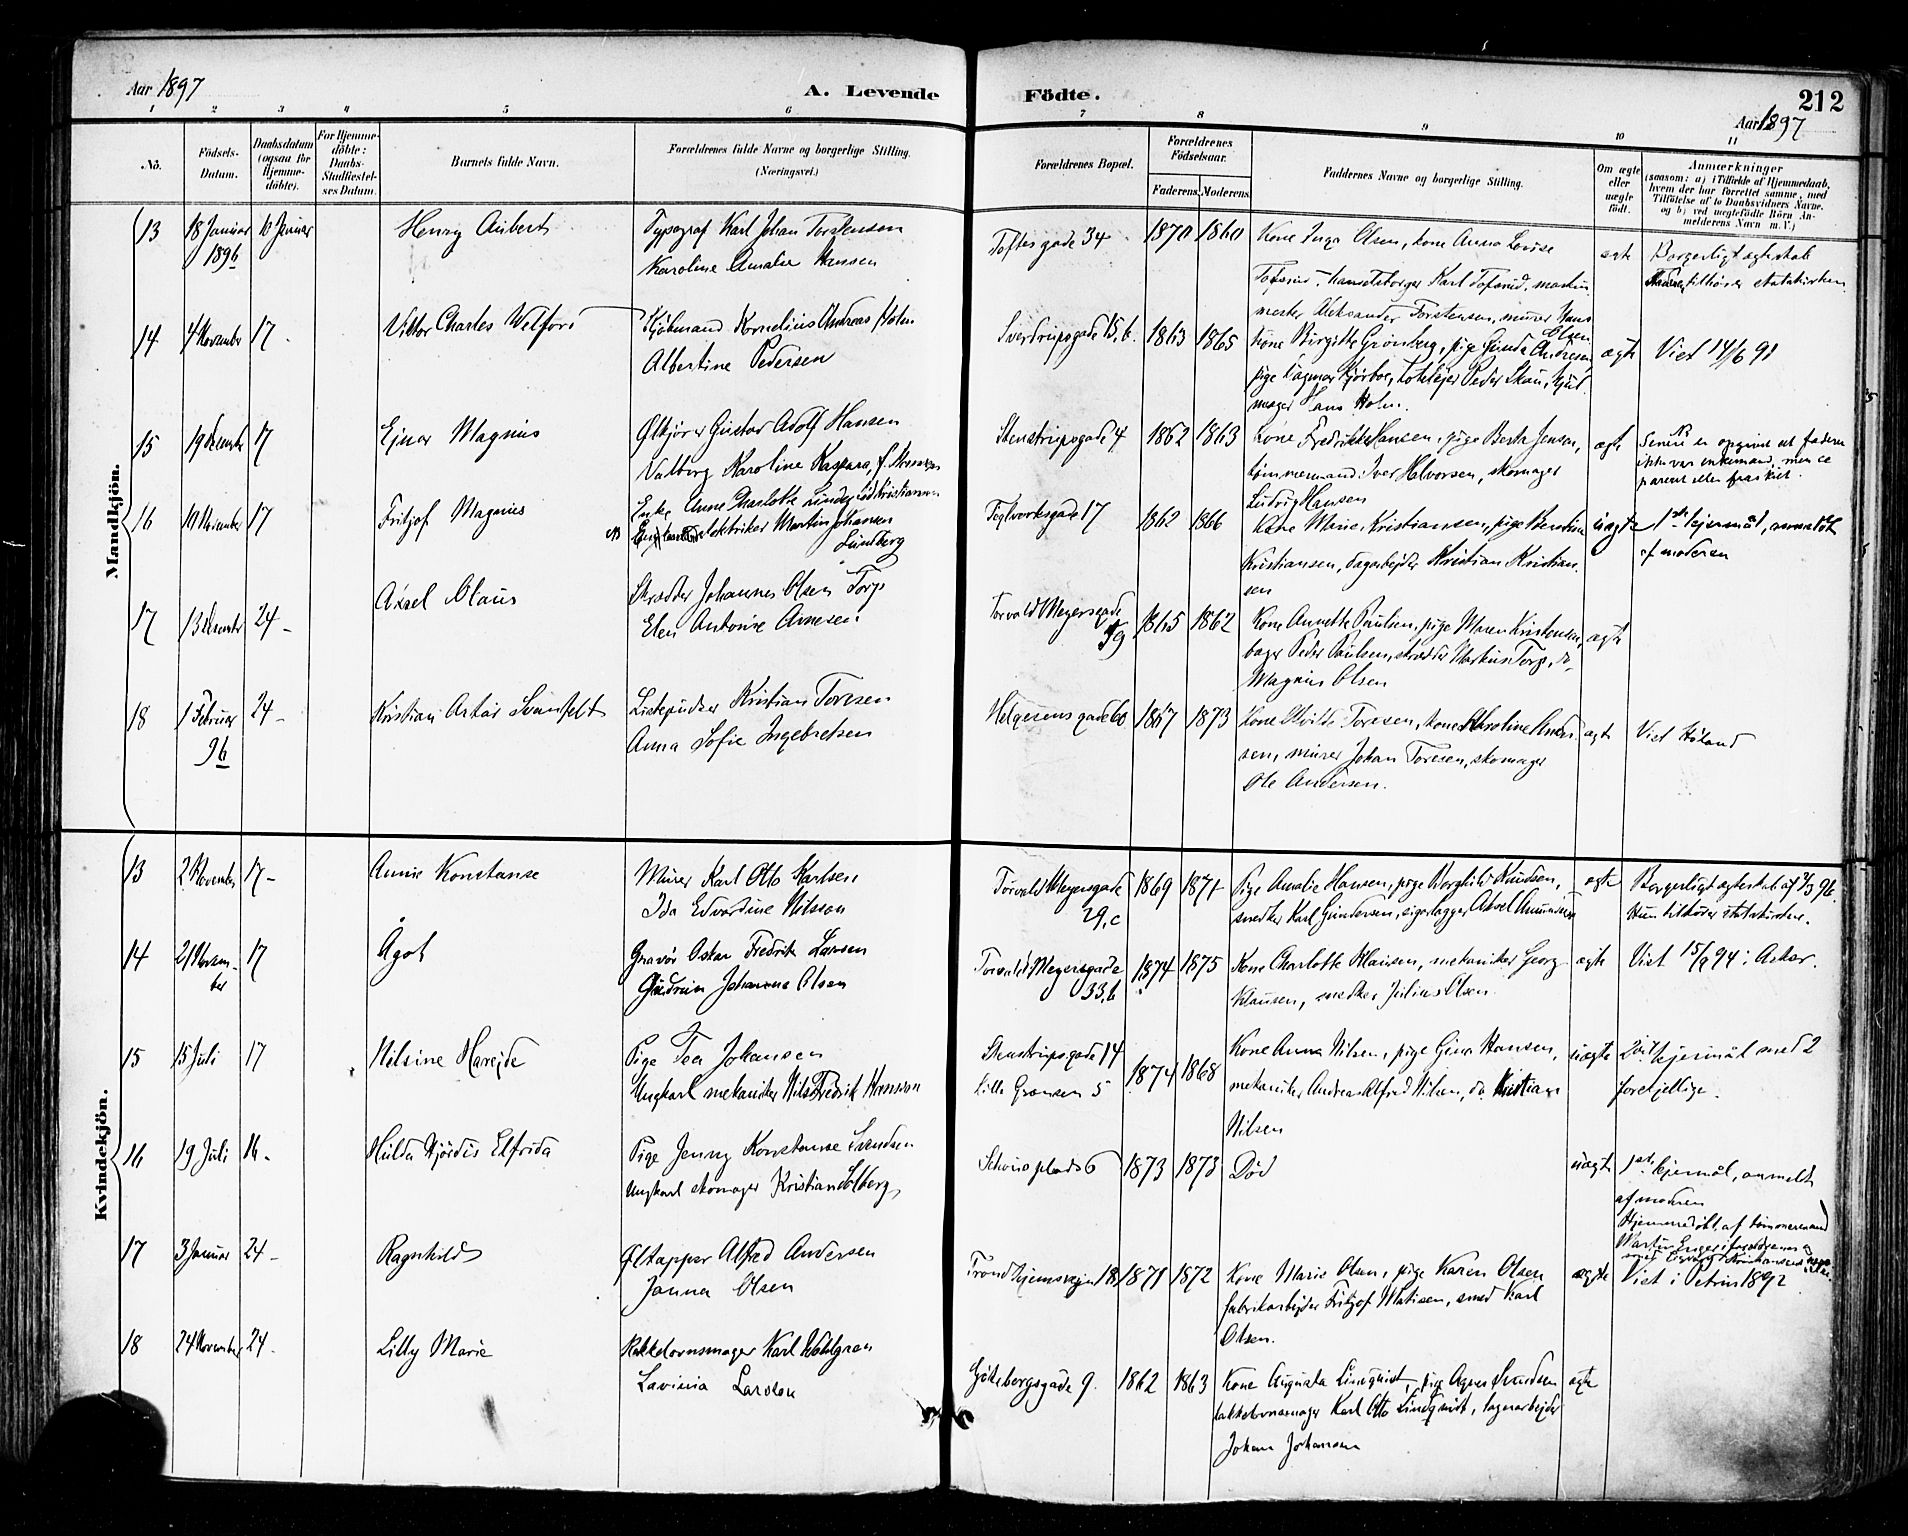 Aar 1897
A. Levende Födte.
212
Aar 1897
1 2 3 4 5 6 7 8 9 10 11
No.
Födsels-Datum.
Daabsdatum (ogsaa for Hjemme-döbte).
For Hjemme-döbte: Daabs-Stadfæstel-ses Datum.
Barnets fulde Navn.
Forældrenes fulde Navne og borgerlige Stilling. (Næringsvei.)
Forældrenes Bopæl.
Forældrenes Födselsaar.
Faderens. Moderens.
Faddernes Navne og borgerlige Stilling.
Om ægte eller uægte födt.
Anmærkninger
(saasom: a) i Tilfælde af Hjemmedaab, hvem der har forrettet samme, med Tilföielse af to Daabsvidners Navne. og b) ved uægtefödte Börn An-melderens Navn m. V.)
Mandkjön.
13 18 Januar 10 Januar Henry Aubert Typograf Karl Johan Torstensen Toftes gade 34 1870 1860 Kone Inga Olsen, kone Anna Lovise ægte Borgerligt ægteskab
1896 Karoline Amalie Hansen Tofsrud, handelsborger Karl Tofsrud, maskin tilhører statskirken
mester Aleksander Torstensen, murer Hans Olsen
14 4 November 17. Viktor Charles Welford Kjøbmand Kornelius Andreas Holm Sverdrupsgade 15, b. 1863 1865 kone Birgitte Grønberg, pige Gunda Andresen ægte Viet 14/6 91
Albertine Pedersen pige Dagmar Kjørboe, Peder Skau, Gul
mager Hans Holm.
15 19 Desember 17 Ejnar Magnus Ølkjører Gustav Adolf Hansen Stenstrupsgade 4 1862 1863 Kone Fredrikke Hansen, pige Berta Jensen, ægte Senere er opgivet at faderen
Valborg Karoline Kaspara, f. tømmermand Iver Halvorsen, skomager ikke var enkemand, men se
Ludvig Hansen parert eller fraskilt.
16 10 November 17 Fritjof Magnus Enke Anne Charlotte Linder født Kristiansen Teglverksgade 17 1862 1866 Kone Marie Kristiansen, pige Berntine uægte 1ste lejermål, anmeldt
elektriker Martin Johansen Lundberg Kristiansen, dagarbejder Kristian Kristian- af moderen
sen
17 13 Desember 24- Aksel Olaus Skrædder Johannes Olsen Torp Torvald Meyersgade 59 1865 1862 Kone Annette Paulsen, pige Maren Kristensen, ægte
Elen Antonie Arnesen bager Peder Paulsen, skrædder Markus Torp, do
Magnus Olsen
18 1 Februar 24- Kristian Artur Svanfeldt Listepudser Kristian Toresen Helgesens gade 60 1867 1873 Kone Matilde Toresen, kone Karoline Ander- ægte Viet Høland
96 Anna Sofie Ingebretsen sen, murer Johan Toresen, skomager
Ole Andersen.
Kvindekjön.
13 2 November 17- Annie Konstanse Murer Karl Otto Karlsen Torvald Meyersgade 1869 1871 Pige Amalie Hansen, pige Borghild Knudsen, ægte Borgerligt ægteskab af 7/3 96.
Ida Edvardine Nilsson 29, c snedker Karl Gundersen, sigarlægger Aksel Amundsen Hun tilhører statskirken.
14 21 Novem- 17 Ågot Gravør Oskar Fredrik Larsen Torvald Meyersgade 1874 1875 Kone Charlotte Klausen, mekaniker Georg ægte Viet 15/9 94 i Aker.
ber Gudrun Johanna Olsen 33, b Klausen, snedker Julius Olsen.
15 15 Juli 17 Nilsine Harejde Pige Tea Johansen Stenstrupsgade 14 1874 1868 Kone Anna Nilsen, pige Gina Hansen, uægte 2det lejermål med 2
Ungkarl mekaniker Nils Fredrik Hansson Lille Grænsen 5 mekaniker Andreas Alfred Nilsen, do Kristian forskjellige.
Nilsen
16 19 Juli 16. Hilda Hjørdis Elfrida Pige Jenny Konstanse Svendsen Schous plads 6 1873 1873 Død uægte 1ste lejermål, anmeldt
Ungkarl skomager Kristian Solberg af moderen
Hjemmedøbt af tømmermand
Martin Enger i forældrenes
17 3 Januar 24- Ragnhild Øltapper Alfred Andersen Trondhjemsvejen 18 1871 1872 Kone Marie Olsen, pige Karen Olsen ægte Viet i Petrus 1892
Janna Olsen fabrikarbejder Fritjof Matisen, smed Karl
Olsen.
18 24 November 24- Lilly Marie Kakkelovnsmager Karl Wahlgren Gøteborgsgade 9. 1862 1863 Kone Augusta Lindquist, pige Agnes Svendsen ægte
Lavinia Larsson kakkelovnsmager Karl Otto Lindquist, lagerarbejder
Johan Johansen